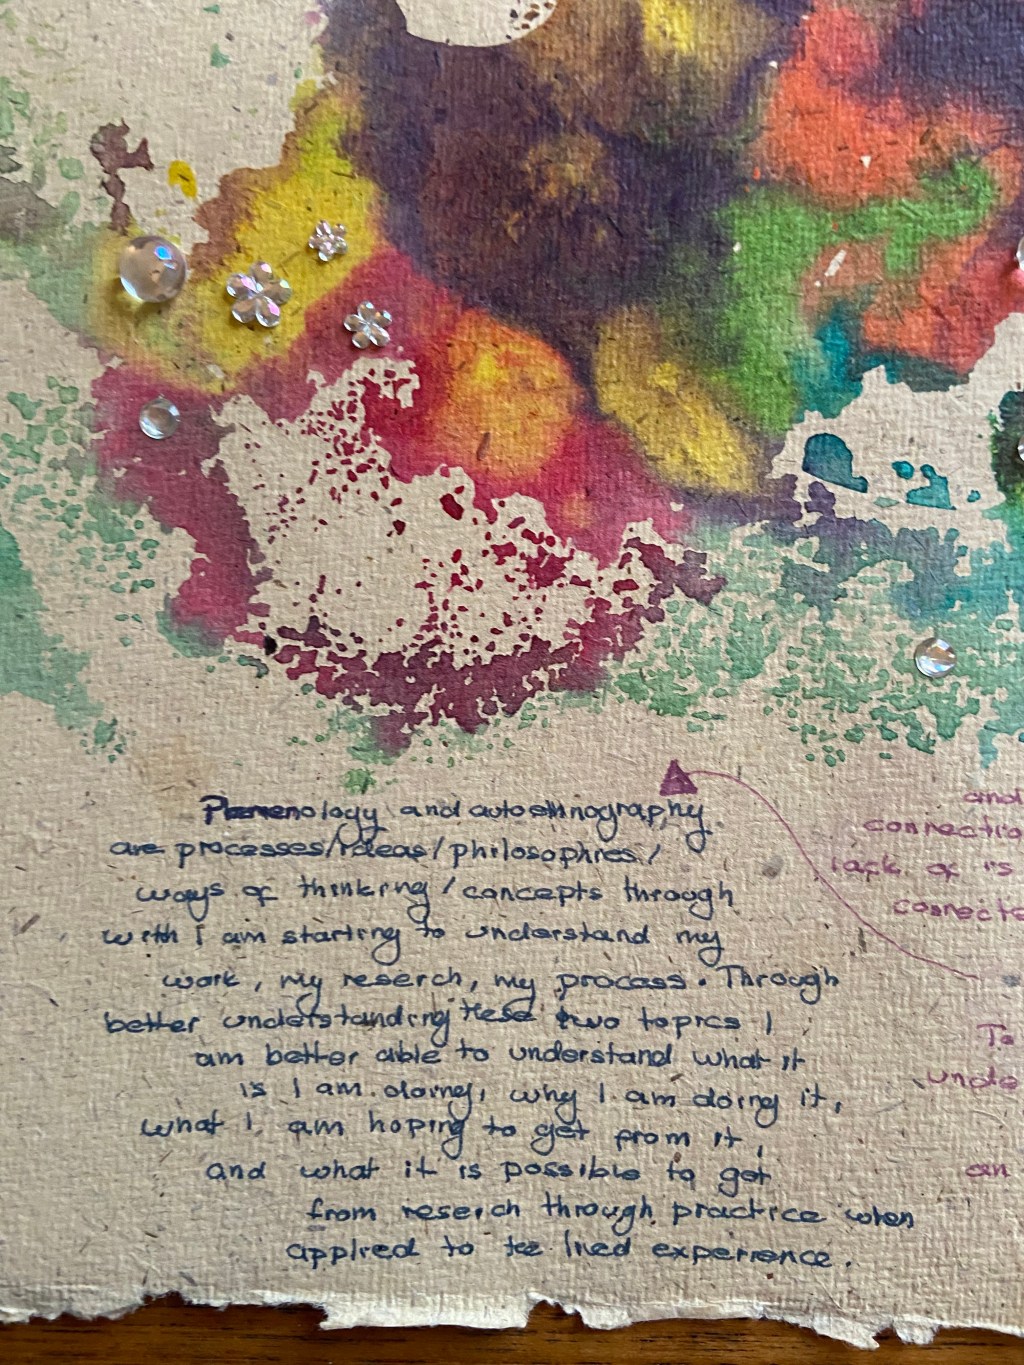 Phemenology and autoethnography
are processes/ideas/philosophies/
ways of thinking/concepts through
with I am starting to understand my
work, my reserch, my process. Through
better understanding these two topics I
am better able to understand what it
is I am doing, why I am doing it,
what I am hoping to get from it,
and what it is possible to get
from reserch through practice when
applied to the lived experience.
and
connectio
lack of is
connecte
To
unde
can